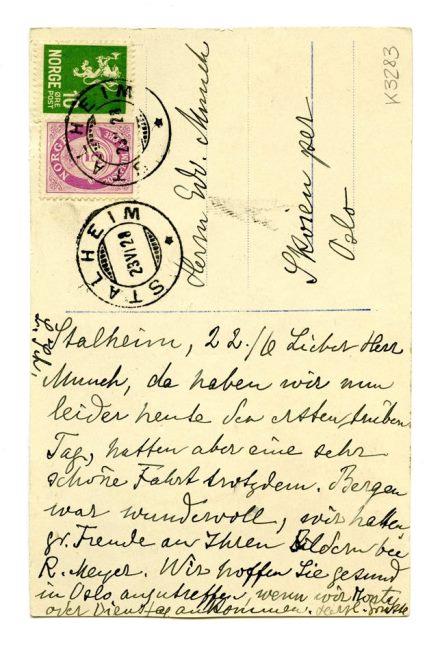 K3283
NORGE
10 ØRE
POST
NORGE
STALHEIM
STALHEIM
23 VI 28
Herrn Edv. Munch
Skoien per
Oslo
Stalheim, 22./6 Lieber Herr
Munch, da haben wir nun
leider heute den ersten trüben
Tag, hatten aber eine sehr
schöne Fahrt trotzdem. Bergen
war wundervoll, wir hatten
gr. Freude an Ihren Bildern bei
R. Meyer. Wir hoffen Sie gesund
in Oslo anzutreffen, wenn wir
oder Dienstag ankommen. Herzl. Grüsse